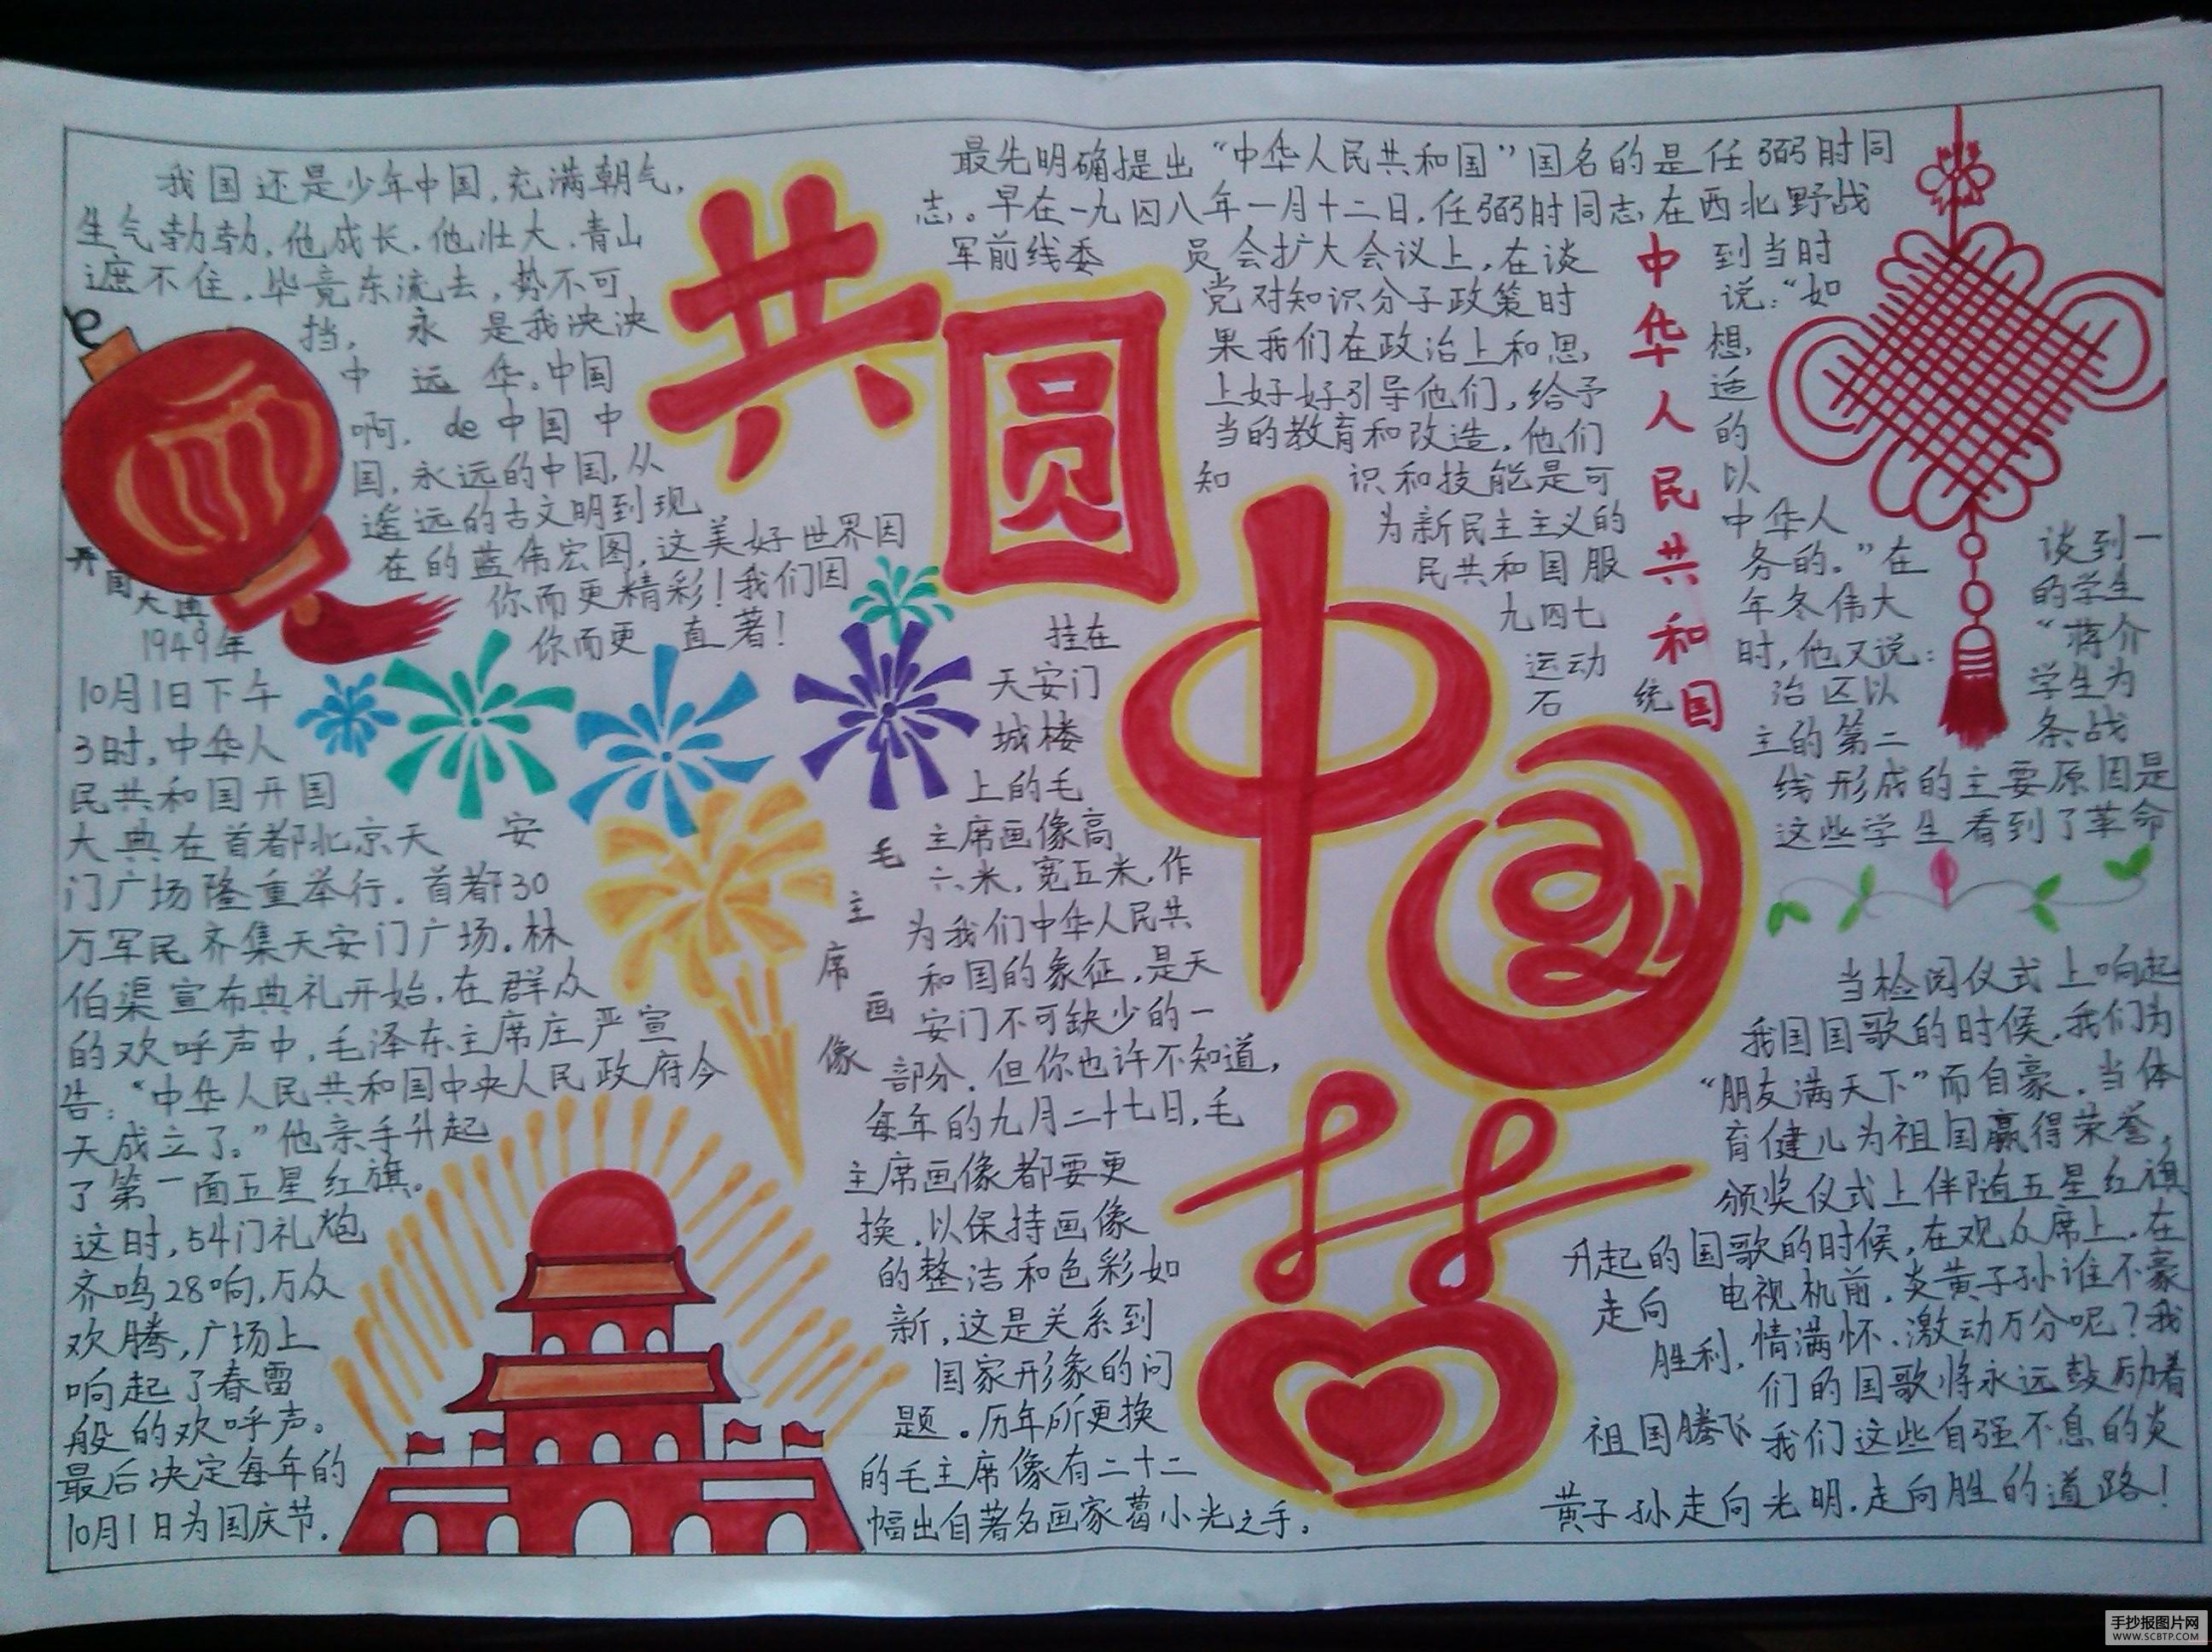 共圆中国梦
我国还是少年中国,充满朝气,
生气勃勃,他成长,他壮大,青山
遮不住,毕竟东流去,势不可
挡, 永 是我泱泱
中 远 华。中国
啊, de 中国 中
国,永远的中国,从
遥远的古文明到现
在的蓝伟宏图,这美好世界因
你而更精彩!我们因
你而更 直著!
开国大典
1949年
10月1日下午
3时,中华人
民共和国开国
大典在首都北京天 安
门广场隆重举行。首都30
万军民齐集天安门广场。林
伯渠宣布典礼开始,在群众
的欢呼声中,毛泽东主席庄严宣
告:“中华人民共和国中央人民政府今
天成立了。”他亲手升起
了第一面五星红旗。
这时,54门礼炮
齐鸣28响,万众
欢腾,广场上
响起了春雷
般的欢呼声。
最后决定每年的
10月1日为国庆节.
毛主席画像
挂在
天安门
城楼
上的毛
主席画像高
六米,宽五米,作
为我们中华人民共
和国的象征,是天
安门不可缺少的一
部分,但你也许不知道,
每年的九月二十七日,毛
主席画像都要更
换,以保持画像
的整洁和色彩如
新,这是关系到
国家形象的问
题。历年所更换
的毛主席像有二十二
幅出自著名画家葛小光之手。
中华人民共和国
最先明确提出“中华人民共和国”国名的是任弼时同
志。早在一九四八年一月十二日,任弼时同志在西北野战
军前线委 员会扩大会议上,在谈 到当时
党对知识分子政策时 说:“如
果我们在政治上和思 想,
上好好引导他们,给予 适
当的教育和改造,他们 的
知 识和技能是可 以
为新民主主义的 中华人
民共和国服 务的。”在 谈到一
九四七 年冬伟大 的学生
运动 时,他又说: “蒋介
石 统 治区以 学生为
主的第二 条战
线形成的主要原因是
这些学生看到了革命
当检阅仪式上响起
我国国歌的时候,我们为
“朋友满天下”而自豪,当体
育健儿为祖国赢得荣誉,
颁奖仪式上伴随五星红旗
升起的国歌的时候,在观众席上,在
走向 电视机前,炎黄子孙谁不豪
胜利, 情满怀、激动万分呢?我
们的国歌将永远鼓励着
祖国腾飞 我们这些自强不息的炎
黄子孙走向光明,走向胜的道路!
手抄报图片网
WWW.SCBTP.COM